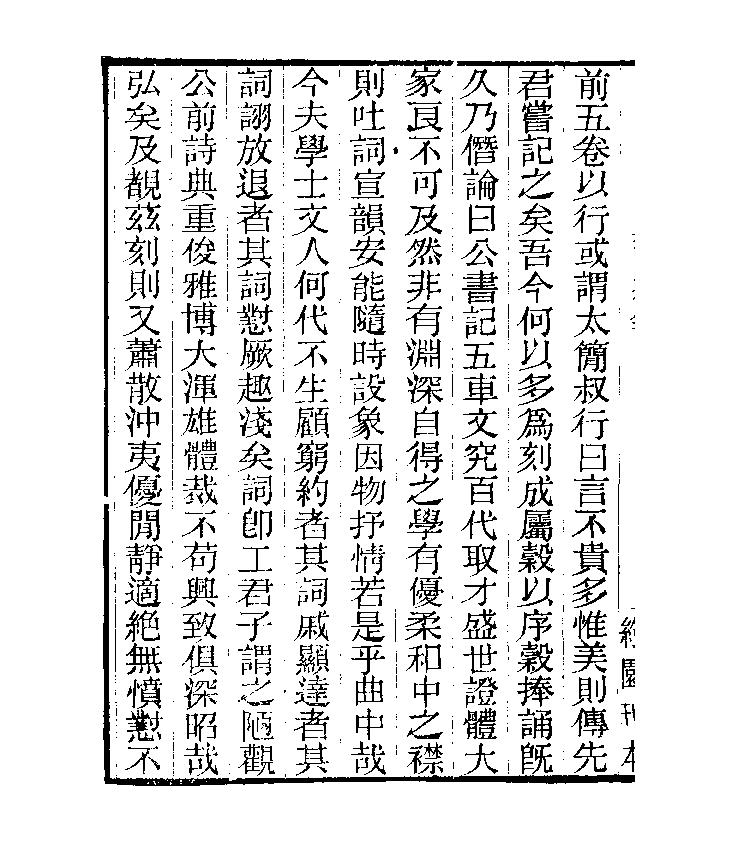 前五卷以行或謂太簡叔行曰言不貴多惟美則傳先
君嘗記之矣吾今何以多爲刻成屬縠以序縠捧誦旣
久乃僭論曰公書記五車文究百代取才盛世證體大
家良不可及然非有淵深自得之學有優柔和中之襟
則吐詞宣韻安能隨時設象因物抒情若是乎曲中哉
今夫學士文人何代不生顧窮約者其詞戚顯達者其
詞詡放退者其詞懟厥趣淺矣詞卽工君子謂之陋觀
公前詩典重俊雅博大渾雄體裁不苟興致俱深昭哉
弘矣及覩茲刻則又蕭散沖夷優閒靜適絶無憤懟不
園刊本